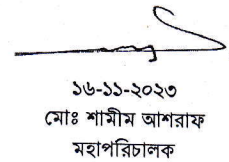 ১৬-১১-২০২৩
মোঃ শামীম আশরাফ
মহাপরিচালক